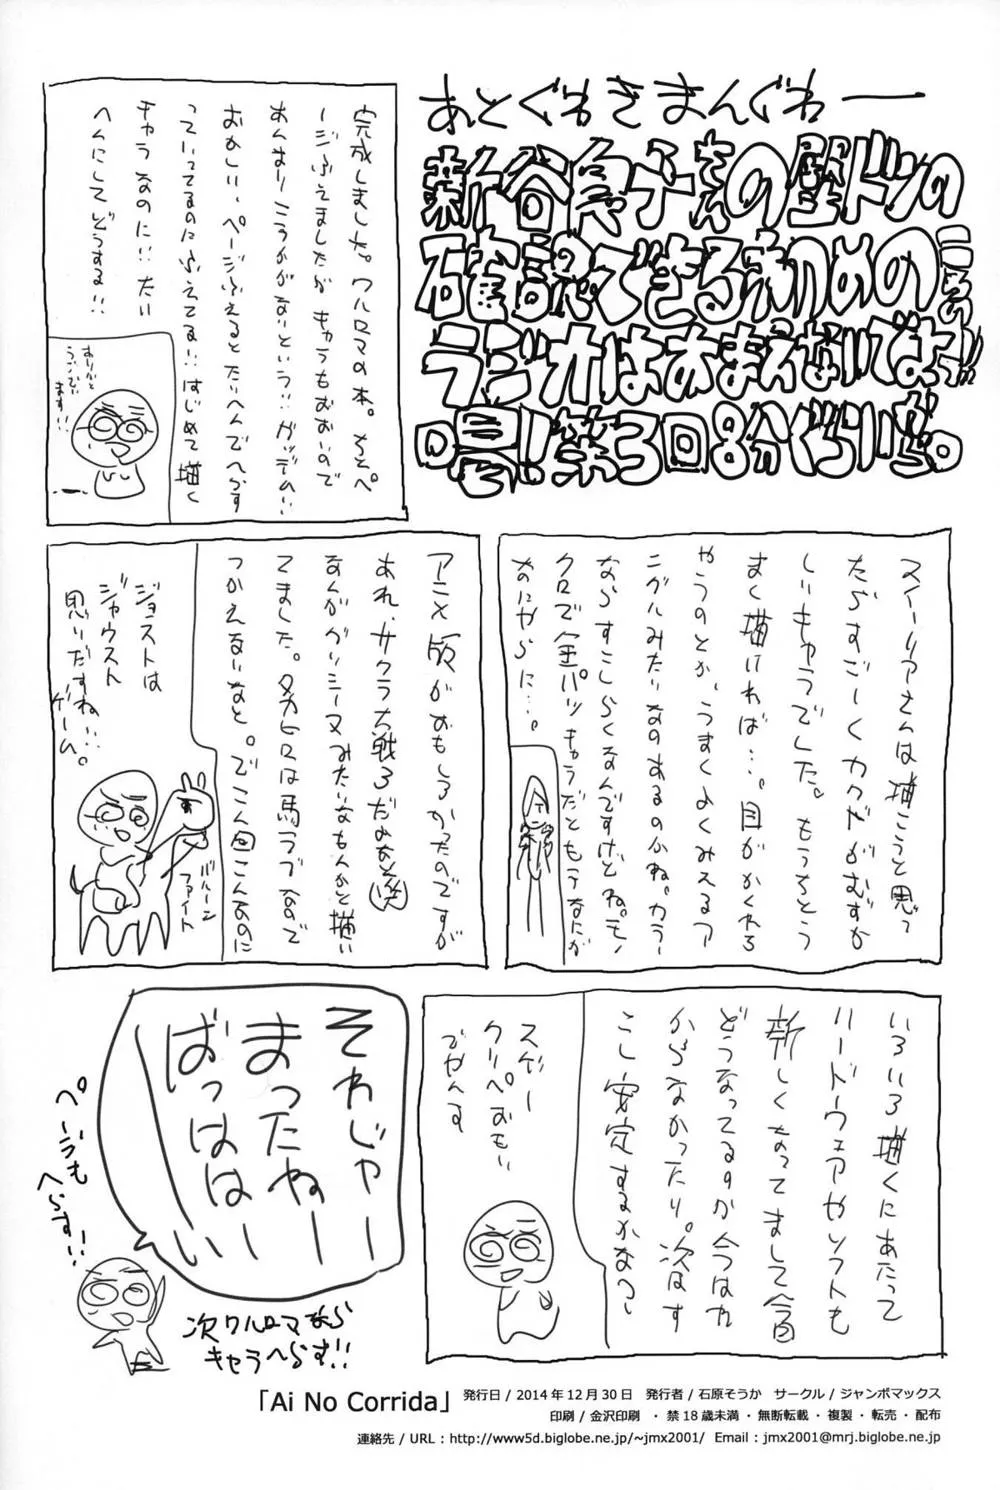 あとぐわきまんぐわー
新谷良子さんの壁ドンの
確認できる初めの
ラジオはあまえないでよっ!!
喝!第3回8分ぐらいから。
完成しました。ワルロマの本。ちとペ
ージふえましたがキャラもおおいので
あんまりこうかがないという!!ガッデム!!
おかしい、ページふえるとたいへんでへらす
っていってるのにふえてる!!はじめて描く
キャラなのに!!たい
へんにしてどうする!!
ありがと
うござい
ます!!
スイーリアさんは描こうと思っ
たらすごーくカクゲがむずか
しいキャラでした。もうちとう
まく描ければ…。目がかくれろ
やうのとか、うまくよくみえるア
ングルみたいなのあるのかね。カラー
ならすこしらくなんですけどね。モノ
クロで金パツキャラだともうなにが
なにやらに…。
アニメ版がおもしろかったのですが
あれ、サクラ大戦3だよなと(笑)
なんかグリシーヌみたいなもんかと描い
てました。タカヒロは馬ラブなので
つかえるいなと。でこん回こんなのに
ジョストは
ジャウスト
思いだすね…
ゲーム。
バルーン
ファイト
いろいろ描くにあたって
ハードウェアやソフトも
新しくなってまして今
どうなってるすか今はわ
からなかったり。次はす
こし安定するかなっ
スゲー
クリペおもい
でやんす
それじゃー
まったねー
ばっははーい
ページも
へらす!!
次ワルロマなら
キャラへらす!!
「Ai No Corrida」 発行日 / 2014年12月30日 発行者 / 石原そうか サークル / ジャンボマックス
印刷 / 金沢印刷 ・禁18歳未満・無断転載・複製・転売・配布
連絡先 / URL : http://www5d.biglobe.ne.jp/~jmx2001/ Email : jmx2001@mrj.biglobe.ne.jp